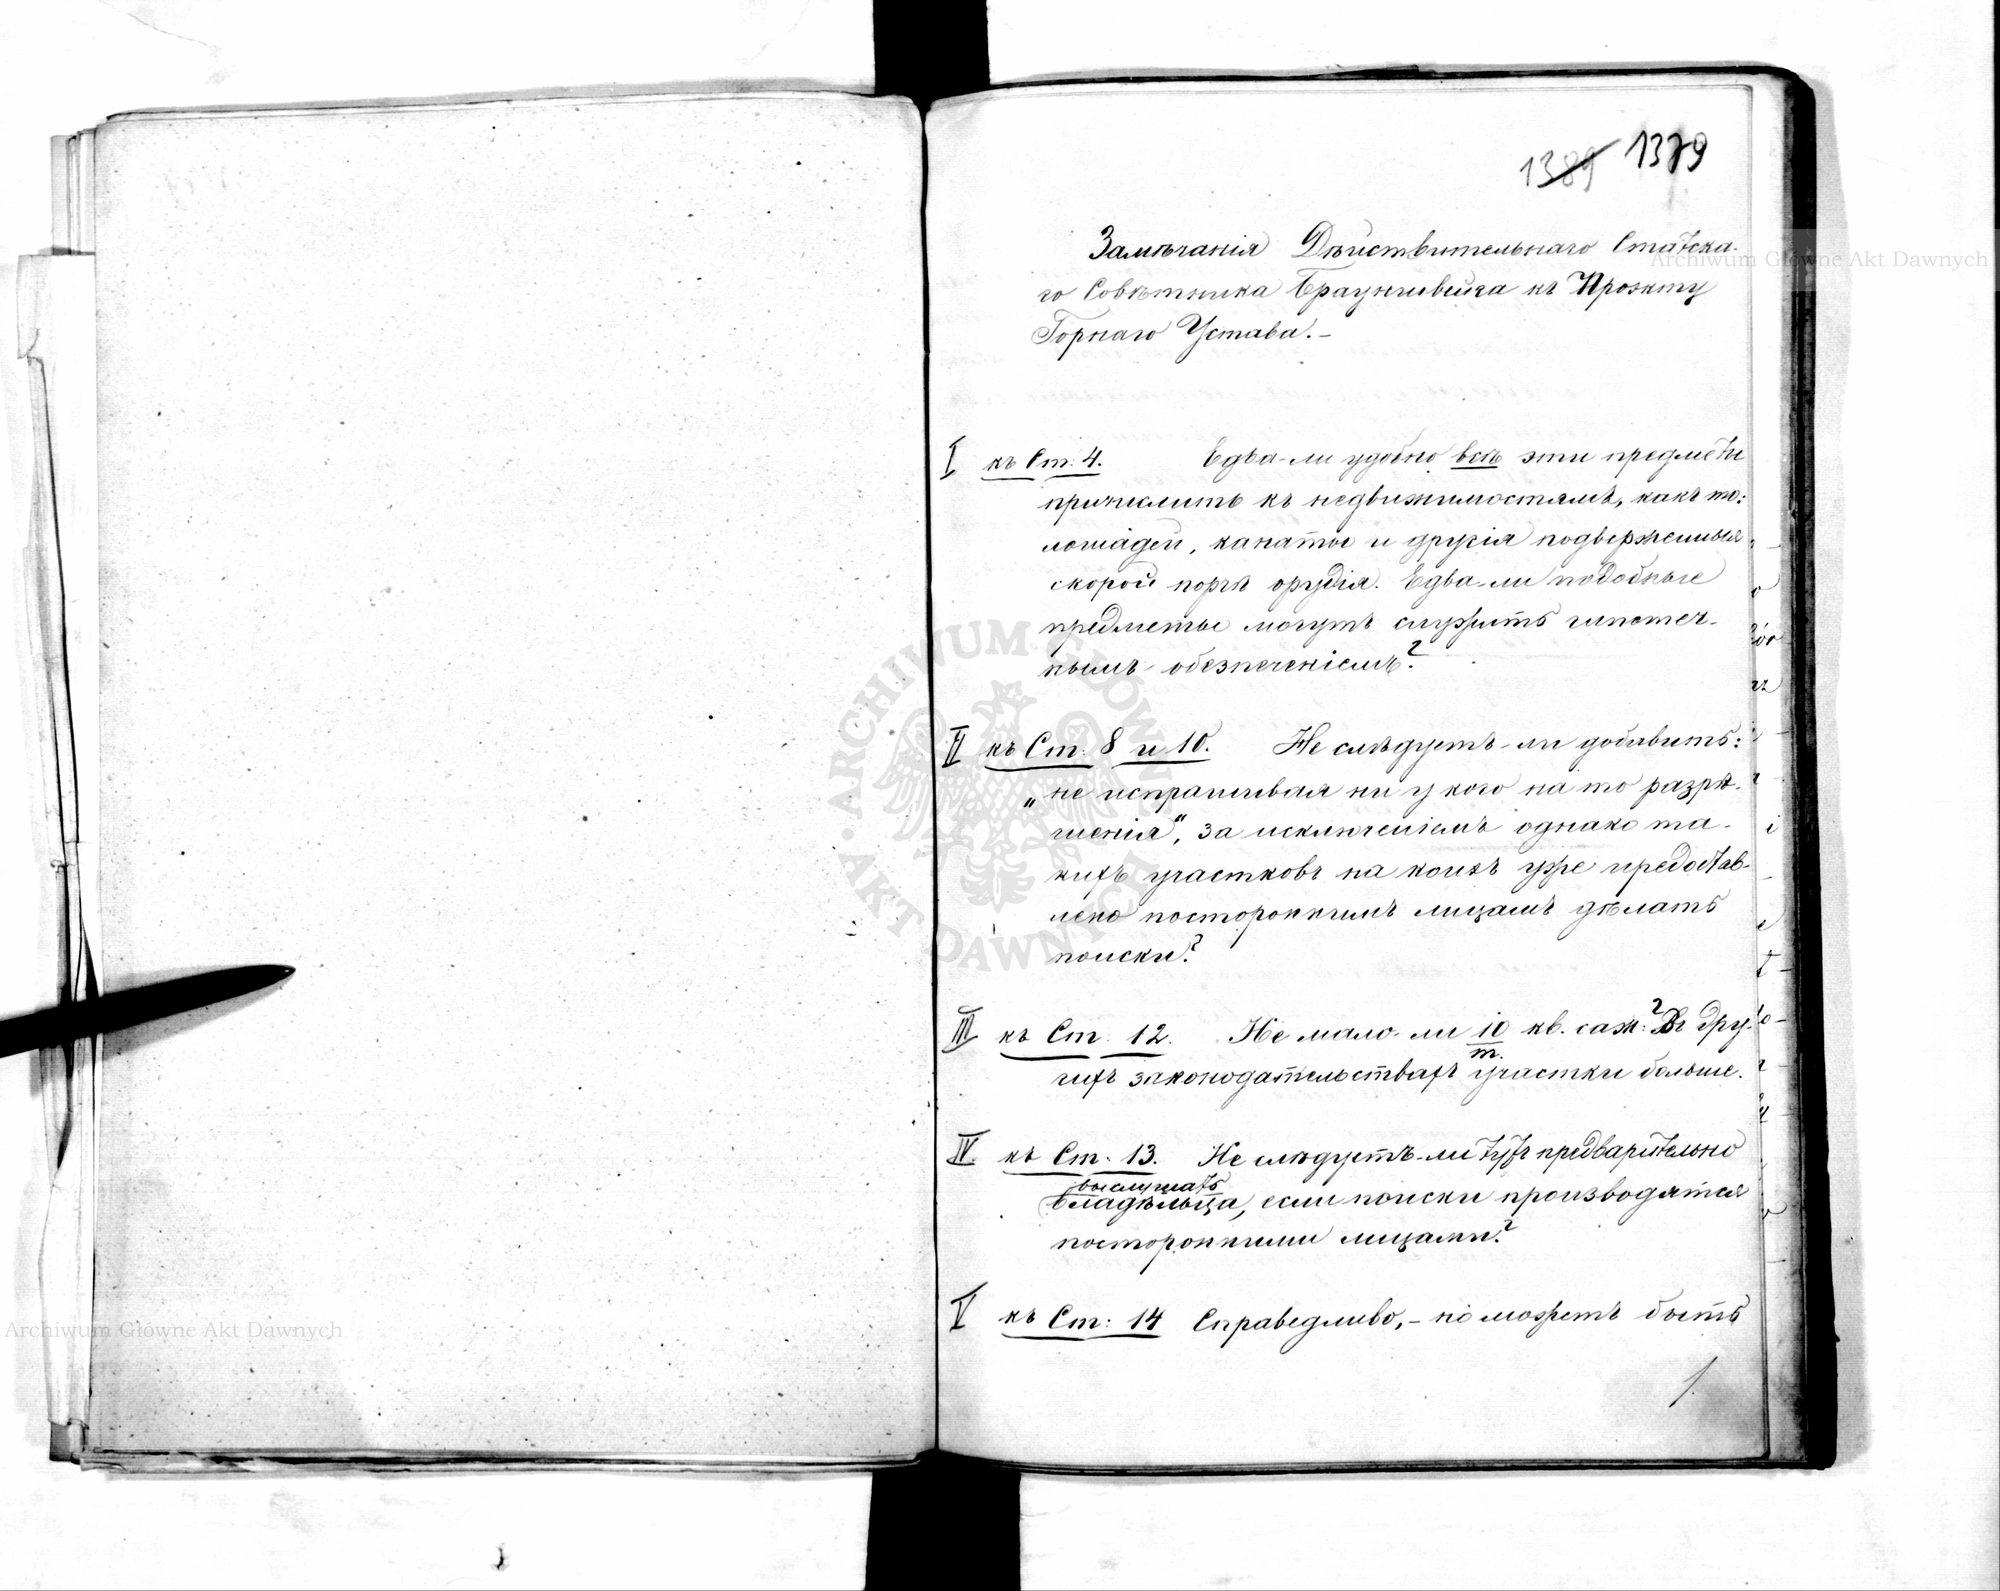 1389 1379
Замѣчанія Дѣйствительнаго Статска-
го Совѣтника Брауншвейга къ Проэкту
Горнаго Устава.-
I къ Ст. 4. Едва-ли удобно всѣ эти предметы
причислить къ недвижимостямъ, какъ то:
лошадей, канаты и другія подверженныя
скорой порчѣ орудія. Едва-ли подобные
предметы могутъ служить ипотеч-
нымъ обезпеченіемъ?
II къ Ст. 8 и 10. Не слѣдуетъ-ли добавить:
„не испрашивая ни у кого на то разрѣ-
шенія", за исключеніемъ однако та-
кихъ участковъ на коихъ уже предостав-
лено постороннимъ лицамъ дѣлать
поиски?
III къ Ст. 12. Не мало-ли 10 кв. саж:? Въ дру-
т.
гихъ законодательствахъ участки больше.
IV. къ Ст: 13. Не слѣдуетъ-ли тутъ предварительно
выслушать
владѣльца, если поиски производятся
посторонними лицами?
V къ Ст: 14 Справедливо,- но можетъ быть
1.
Archiwum Główne Akt Dawnych
Archiwum Główne Akt Dawnych
ARCHIWUM GŁÓWNE AKT DAWNYCH